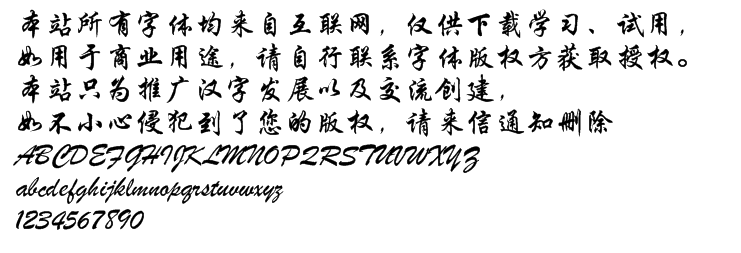 本站所有字体均来自互联网，仅供下载学习、试用，
如用于商业用途，请自行联系字体版权方获取授权。
本站只为推广汉字发展以及交流创建，
如不小心侵犯到了您的版权，请来信通知删除
ABCDEFGHIJKLMNOPQRSTUVWXYZ
abcdefghijklmnopqrstuvwxyz
1234567890